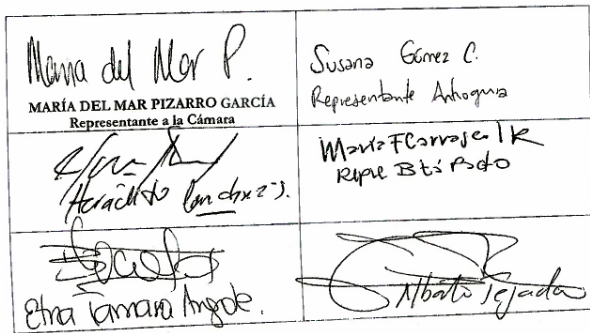 Maria del Mar P.
MARÍA DEL MAR PIZARRO GARCÍA
Representante a la Cámara
Susana Gómez C.
Representante Antioquia
Heraclito Landinez S.
María F Carrascal R
Repre Btá Pacto
Etna Tamara Argote.
Alberto Tejada